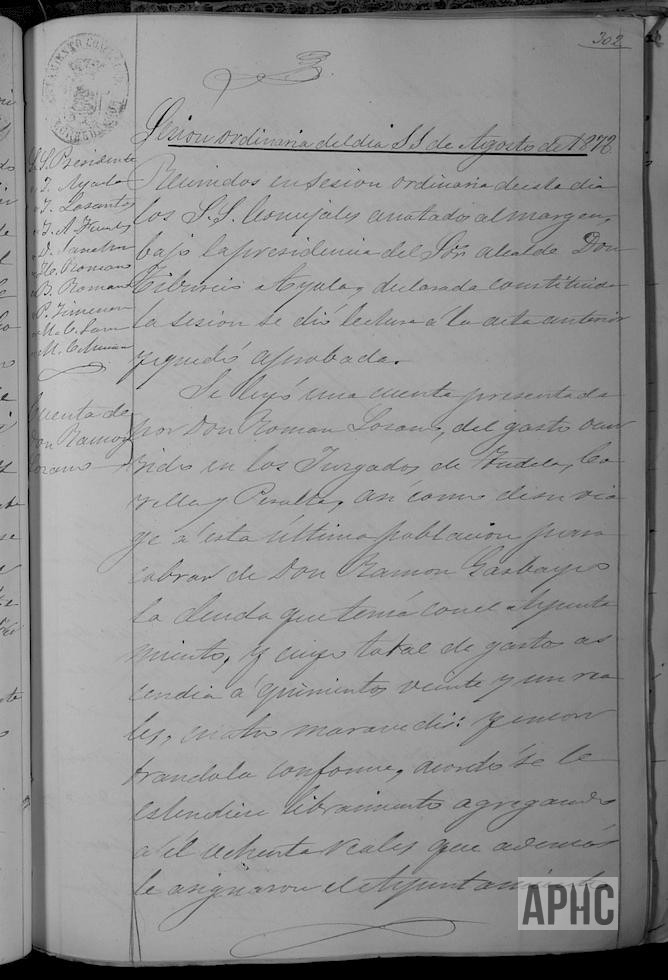 302
Sesion ordinaria del dia 11 de Agosto de 1878
S.S. Presidente
T. Ayala
T. Losantos
D. Sanchez
Romano
B. Romano
P. Jimenez
Reunidos en sesion ordinaria de este dia
los S.S. Concejales anotados al margen,
bajo la presidencia del Sôr alcalde Don
Tiburcio Ayala, declarada constituida
la sesion se dió lectura á la acta anterior
y quedó aprobada.
Cuenta de
Don Ramon
Lozano
Se leyó una cuenta presentada
por Don Roman Losano, del gasto ocur
rido en los Juzgados de Tudela, Co
rella y Peralta, asi como de su via
ge á esta última poblacion para
cobrar de Don Ramon
la deuda que tenia con el Ayunta
miento, y cuyo total de gastos as
cendia á quinientos veinte y un rea
les, cuatro maravedis: y encon
trandola conforme, acordó se le
estendiese libramiento agregando
á él ochenta reales que además
le asignaron el Ayuntamiento
APHC